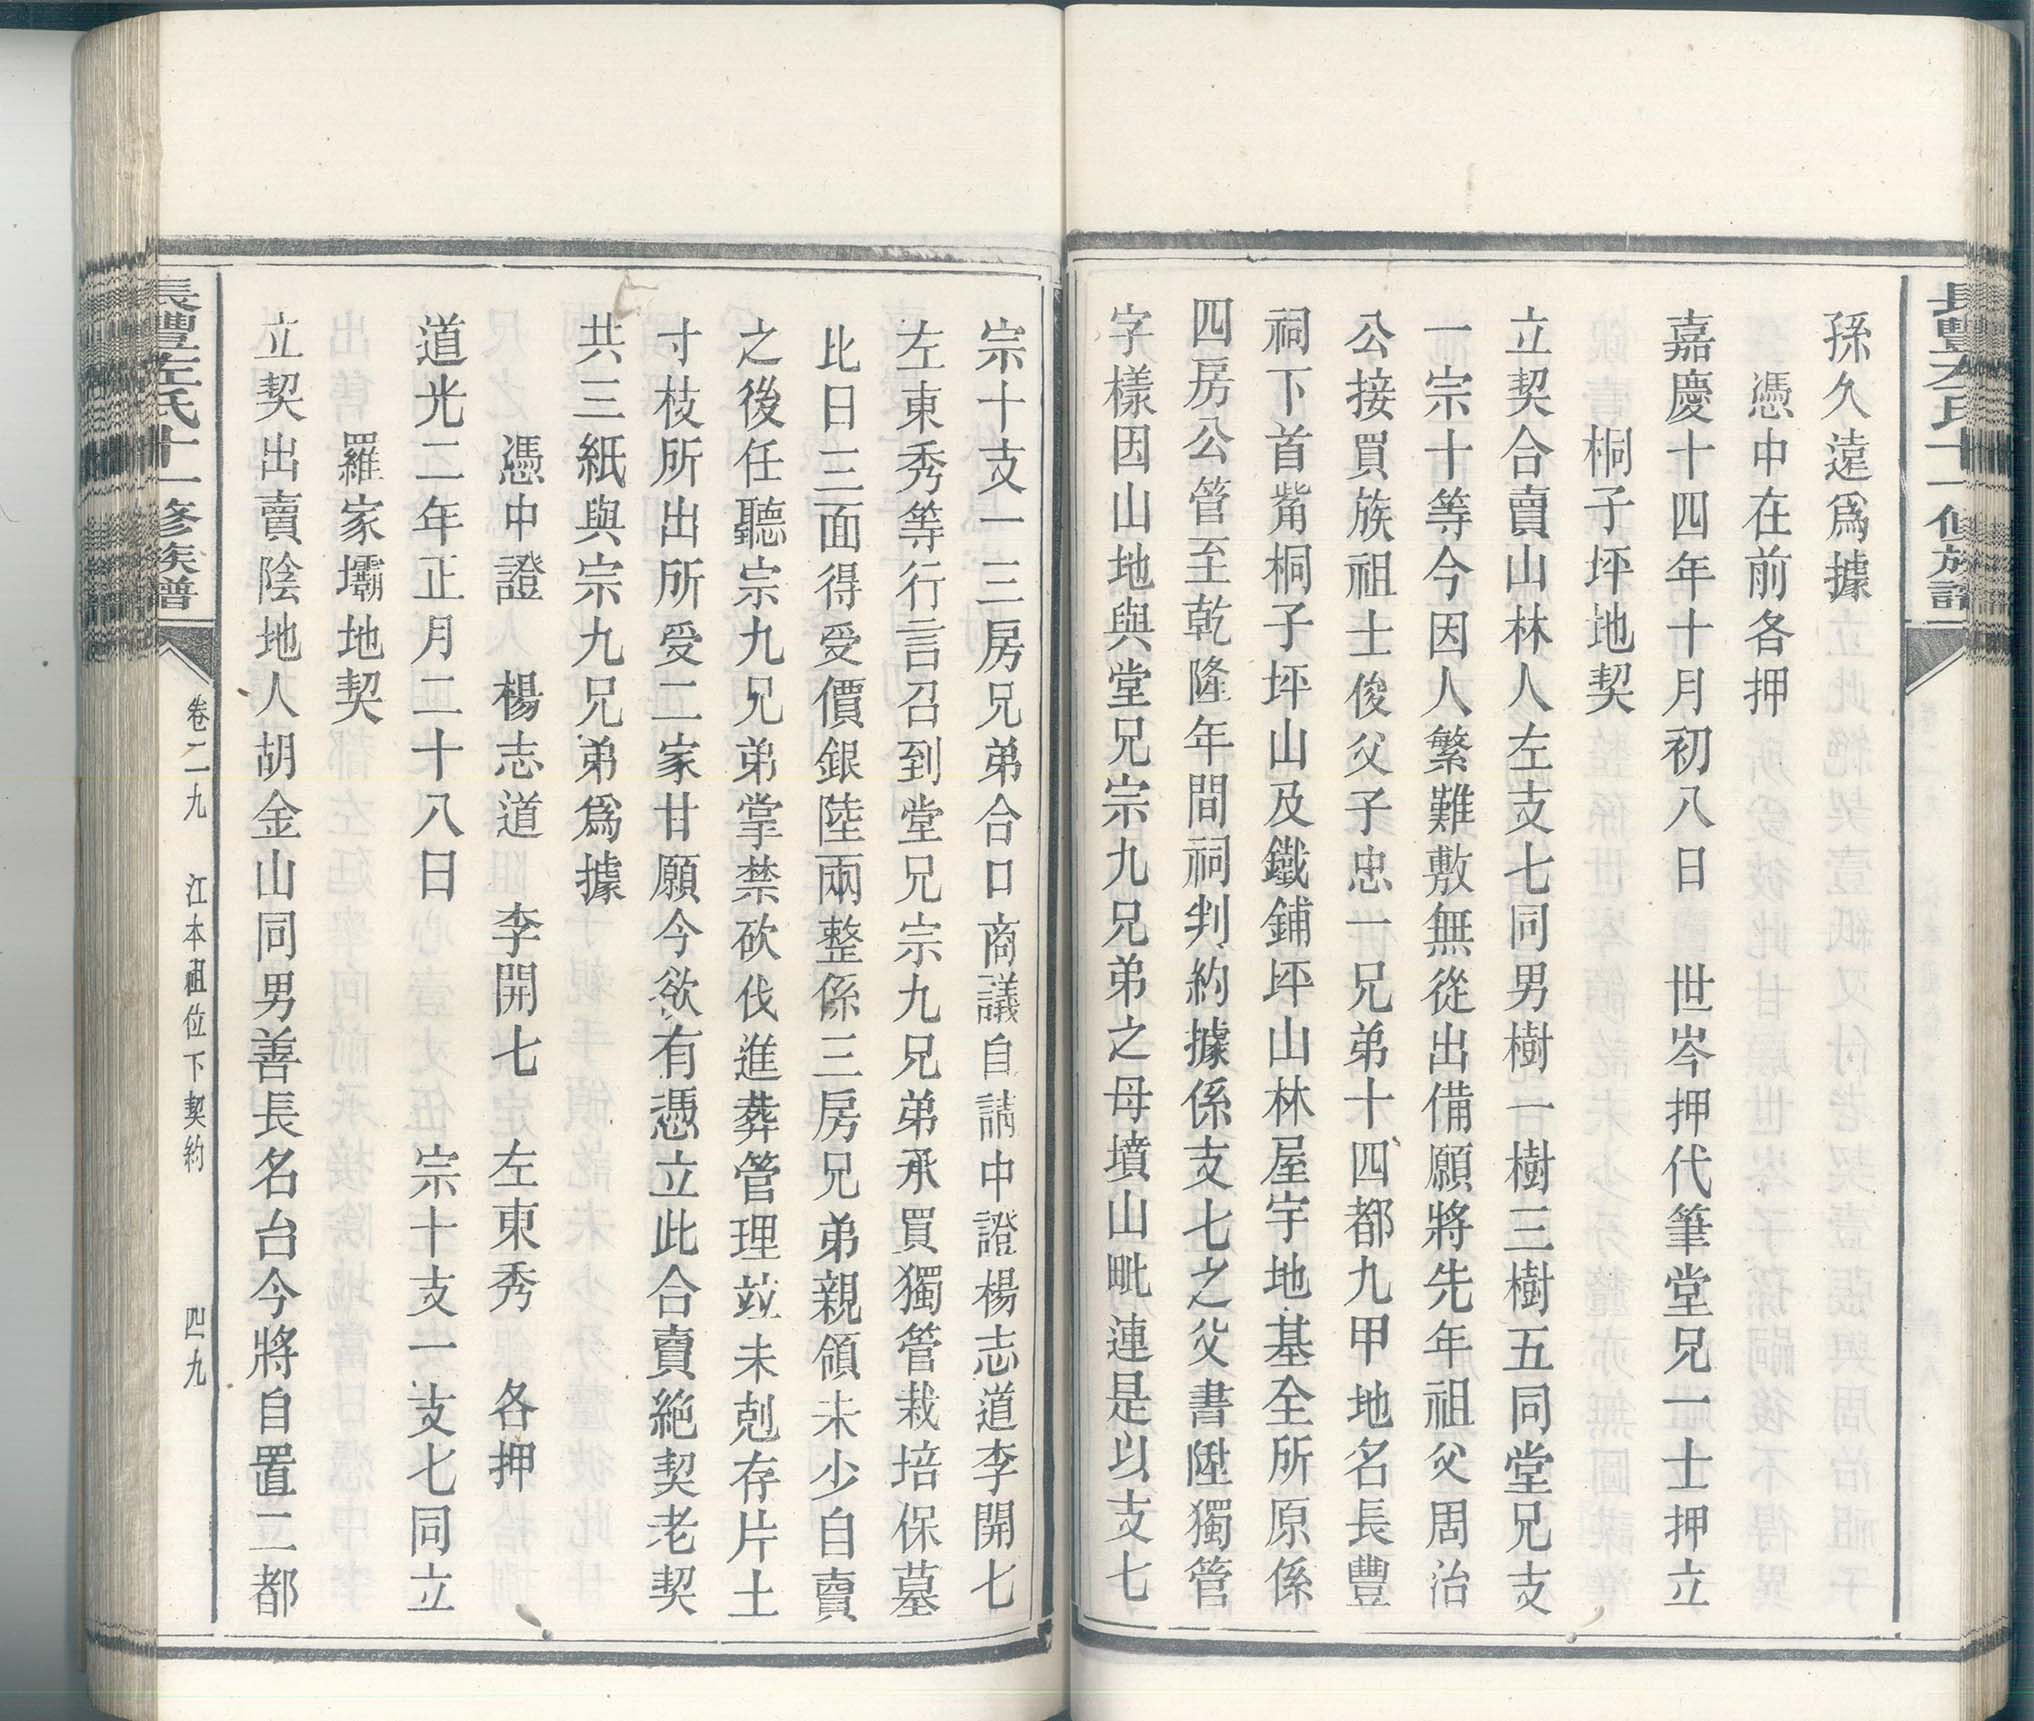 長豐左氏十一修族譜
孫久遠爲據
憑中在前各押
嘉慶十四年十月初八日　世岑押代筆堂兄一士押立
桐子坪地契
立契合賣山林人左支七同男樹一樹三樹五同堂兄支
一宗十等今因人繁難敷無從出備願將先年祖父周治
公接買族祖士俊父子忠一兄弟十四都九甲地名長豐
祠下首觜桐子坪山及鐵鋪坪山林屋宇地基全所原係
四房公管至乾隆年間祠判約據係支七之父書陞獨管
字樣因山地與堂兄宗九兄弟之母墳山毗連是以支七
宗十支一三房兄弟合口商議自請中證楊志道李開七
左東秀等行言召到堂兄宗九兄弟承買獨管栽培保墓
比日三面得受價銀陸兩整係三房兄弟親領未少自賣
之後任聽宗九兄弟掌禁砍伐進葬管理竝未剋存片土
寸枝所出所受二家甘願今欲有憑立此合賣絶契老契
共三紙與宗九兄弟爲據
憑中證　楊志道　李開七　左東秀　各押
道光二年正月二十八日　宗十支一支七同立
羅家壩地契
立契出賣陰地人胡金山同男善長名台今將自置二都
長豐左氏十一修族譜
卷二九　江本祖位下契約　四九